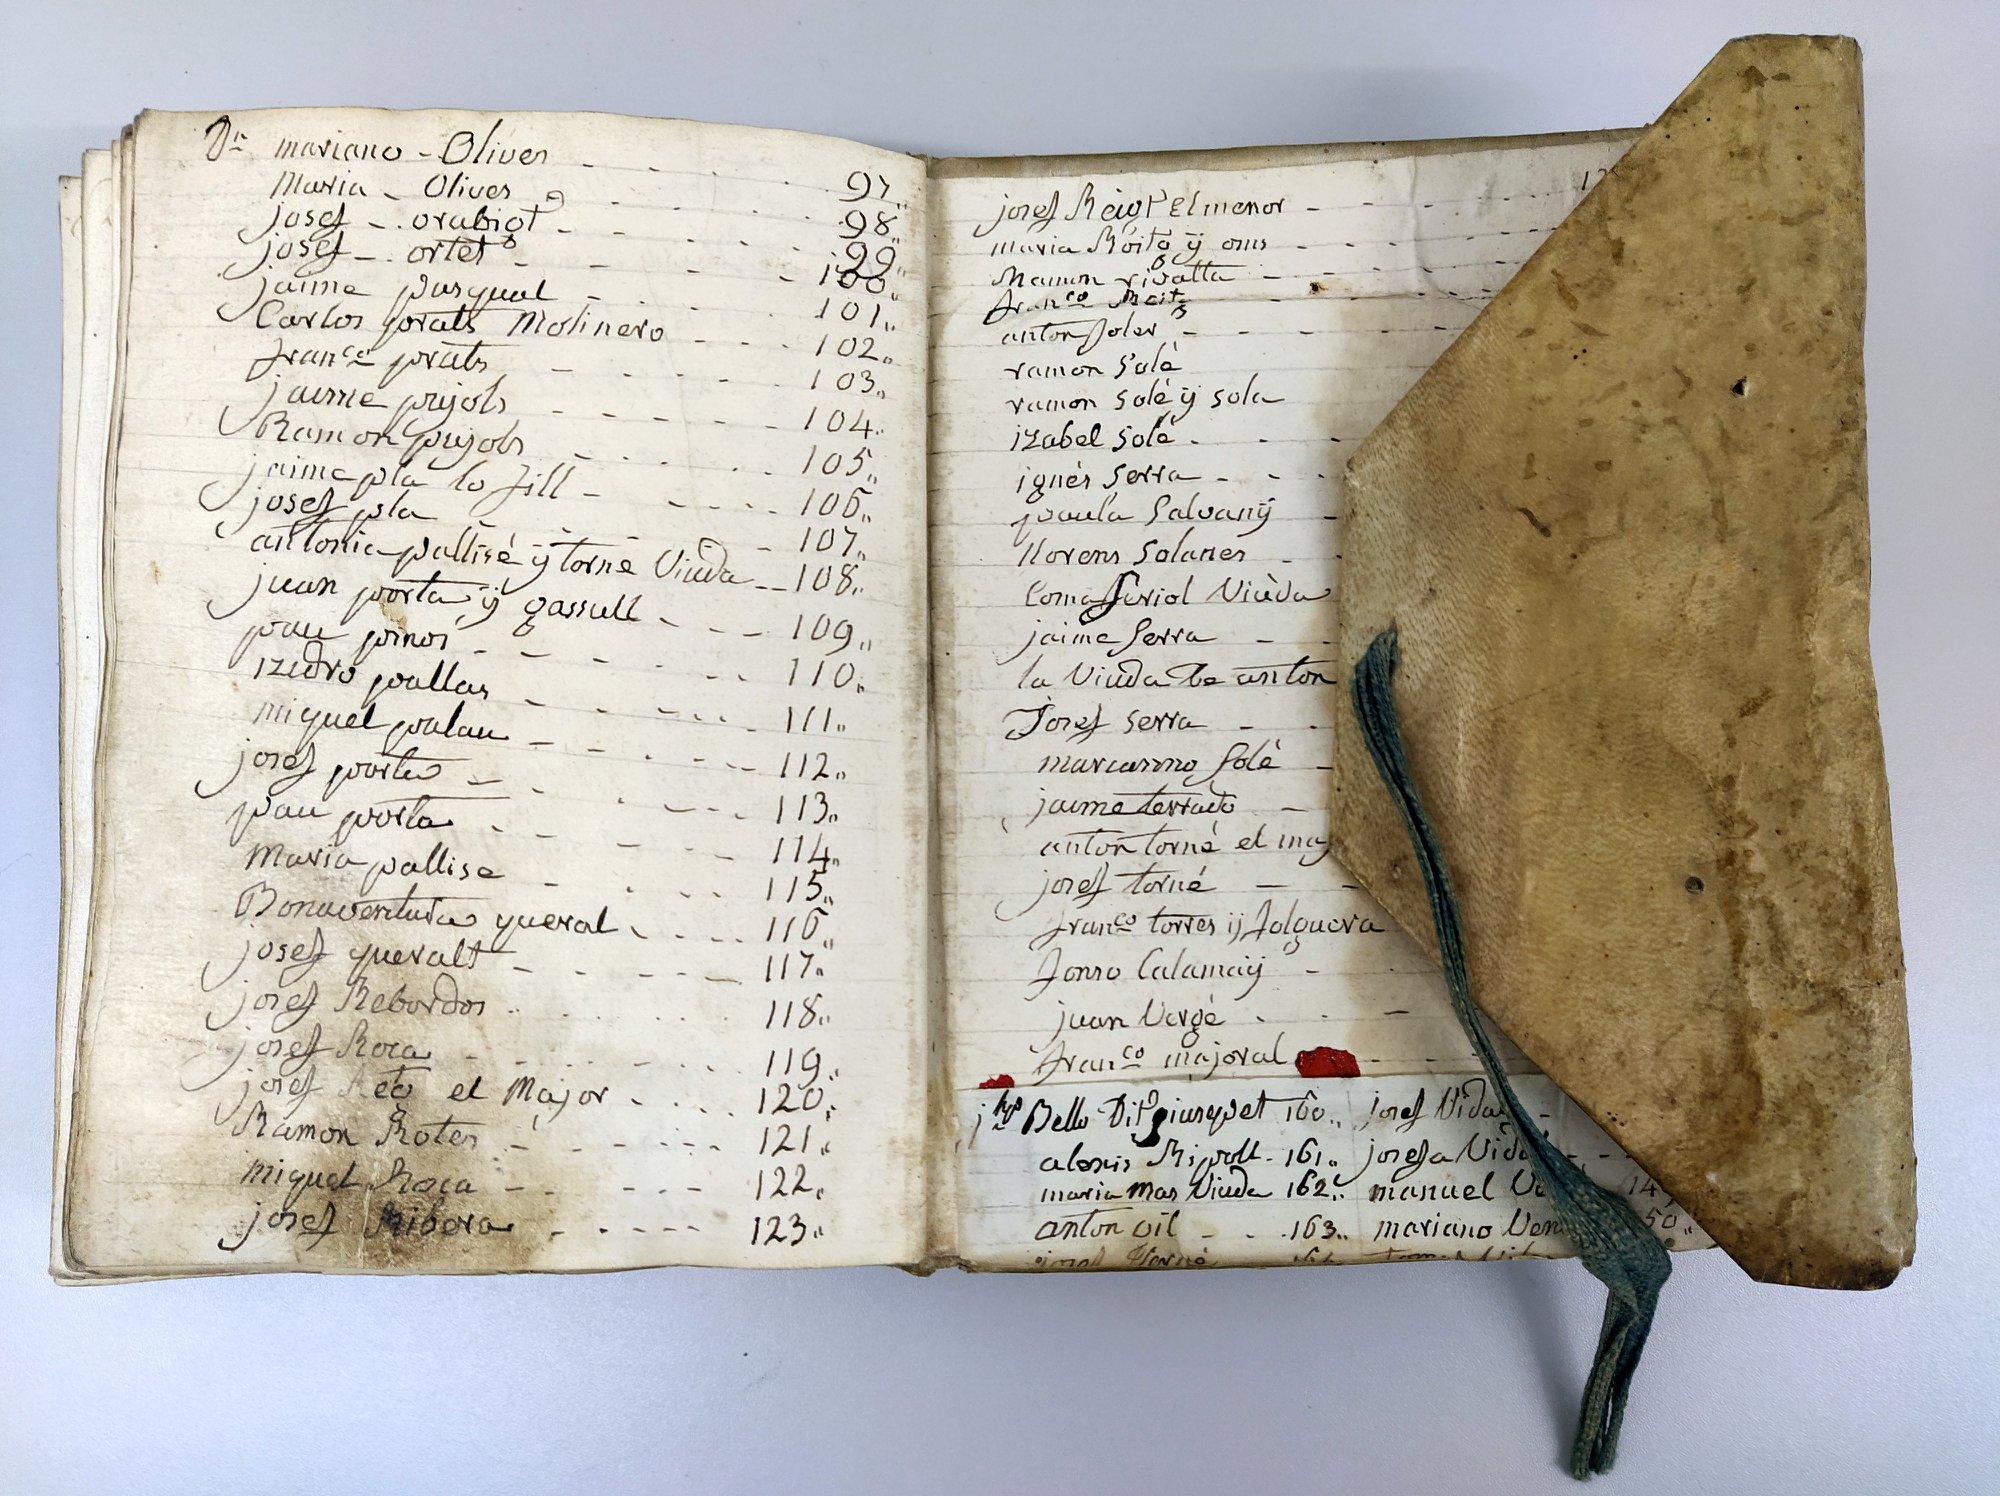 Dn mariano - Oliver - - - - 97
Maria - Olives - - - 98
josef - orabigt - - - 99
josef - ortet - - - 100
jaime pasqual - - - 101
Carlos prats Molinero - - - 102
franco prats - - - 103
jaime pujols - - - 104
Ramon pujols - - - 105
jaime pla lo fill - - - 106
josef pla - - - 107
antonia pallisé ÿ torné Viuda - - 108
juan porta ÿ gassull - - - 109
pau pinos - - - 110
izidro pallas - - - 111
miquel palau - - - 112
josef porta - - - 113
pau porta - - - 114
Maria pallise - - - 115
Bonaventura queral - - - 116
josef queralt - - - 117
josef Rebordos - - - 118
josef Roca - - - 119
josef el Major - - - 120
Ramon Roter - - - 121
miquel Roca - - - 122
josef Ribera - - - 123
josef Reigt El menor - - -
maria Roita ÿ oms - - -
Ramon rivalta - - -
franco
anton Soler - - -
ramon Solé
ramon Solé ÿ Sola
izabel Solé - - -
ignés Serra - - -
paula Salvanÿ -
llorens Solanes - -
Coma Suriol Viuda
jaime Serra - -
la Viuda de anton
Josef Serra - -
marianno Solé -
jaime terrado -
anton torné el maj
josef torné - -
franco torres ÿ folguera
Jonro Calamaÿ -
juan Vergé - - -
franco majoral - - -
Bello Dit giusepet 160 josef Vidal -
alexis Ripoll - 161 josefa Vida - -
maria mas Viuda 162 manuel 149
anton oil - - 163 mariano Ven 50